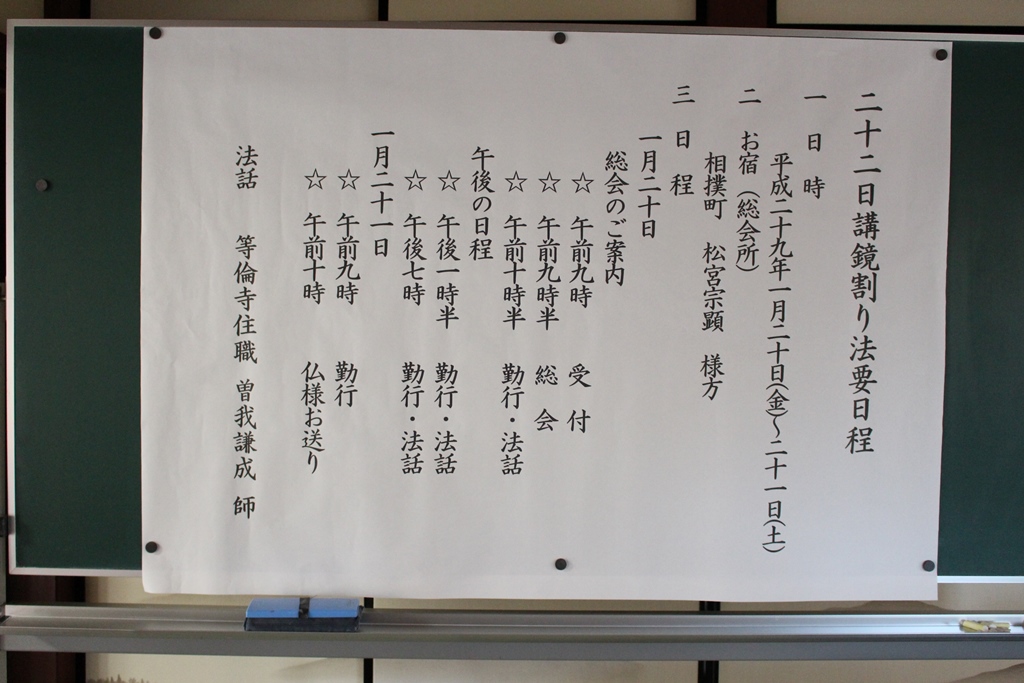 二十二日講鏡割り法要日程
一 日 時
平成二十九年一月二十日(金)～二十一日(土)
二 お宿(総会所)
相撲町 松宮宗顕 様方
三 日 程
一月二十日
総会のご案内
☆ 午前九時 受 付
☆ 午前九時半 総 会
☆ 午前十時半 勤行・法話
午後の日程
☆ 午後一時半 勤行・法話
☆ 午後七時 勤行・法話
一月二十一日
☆ 午前九時 勤行
☆ 午前十時 仏様お送り
法話 等倫寺住職 曽我謙成 師